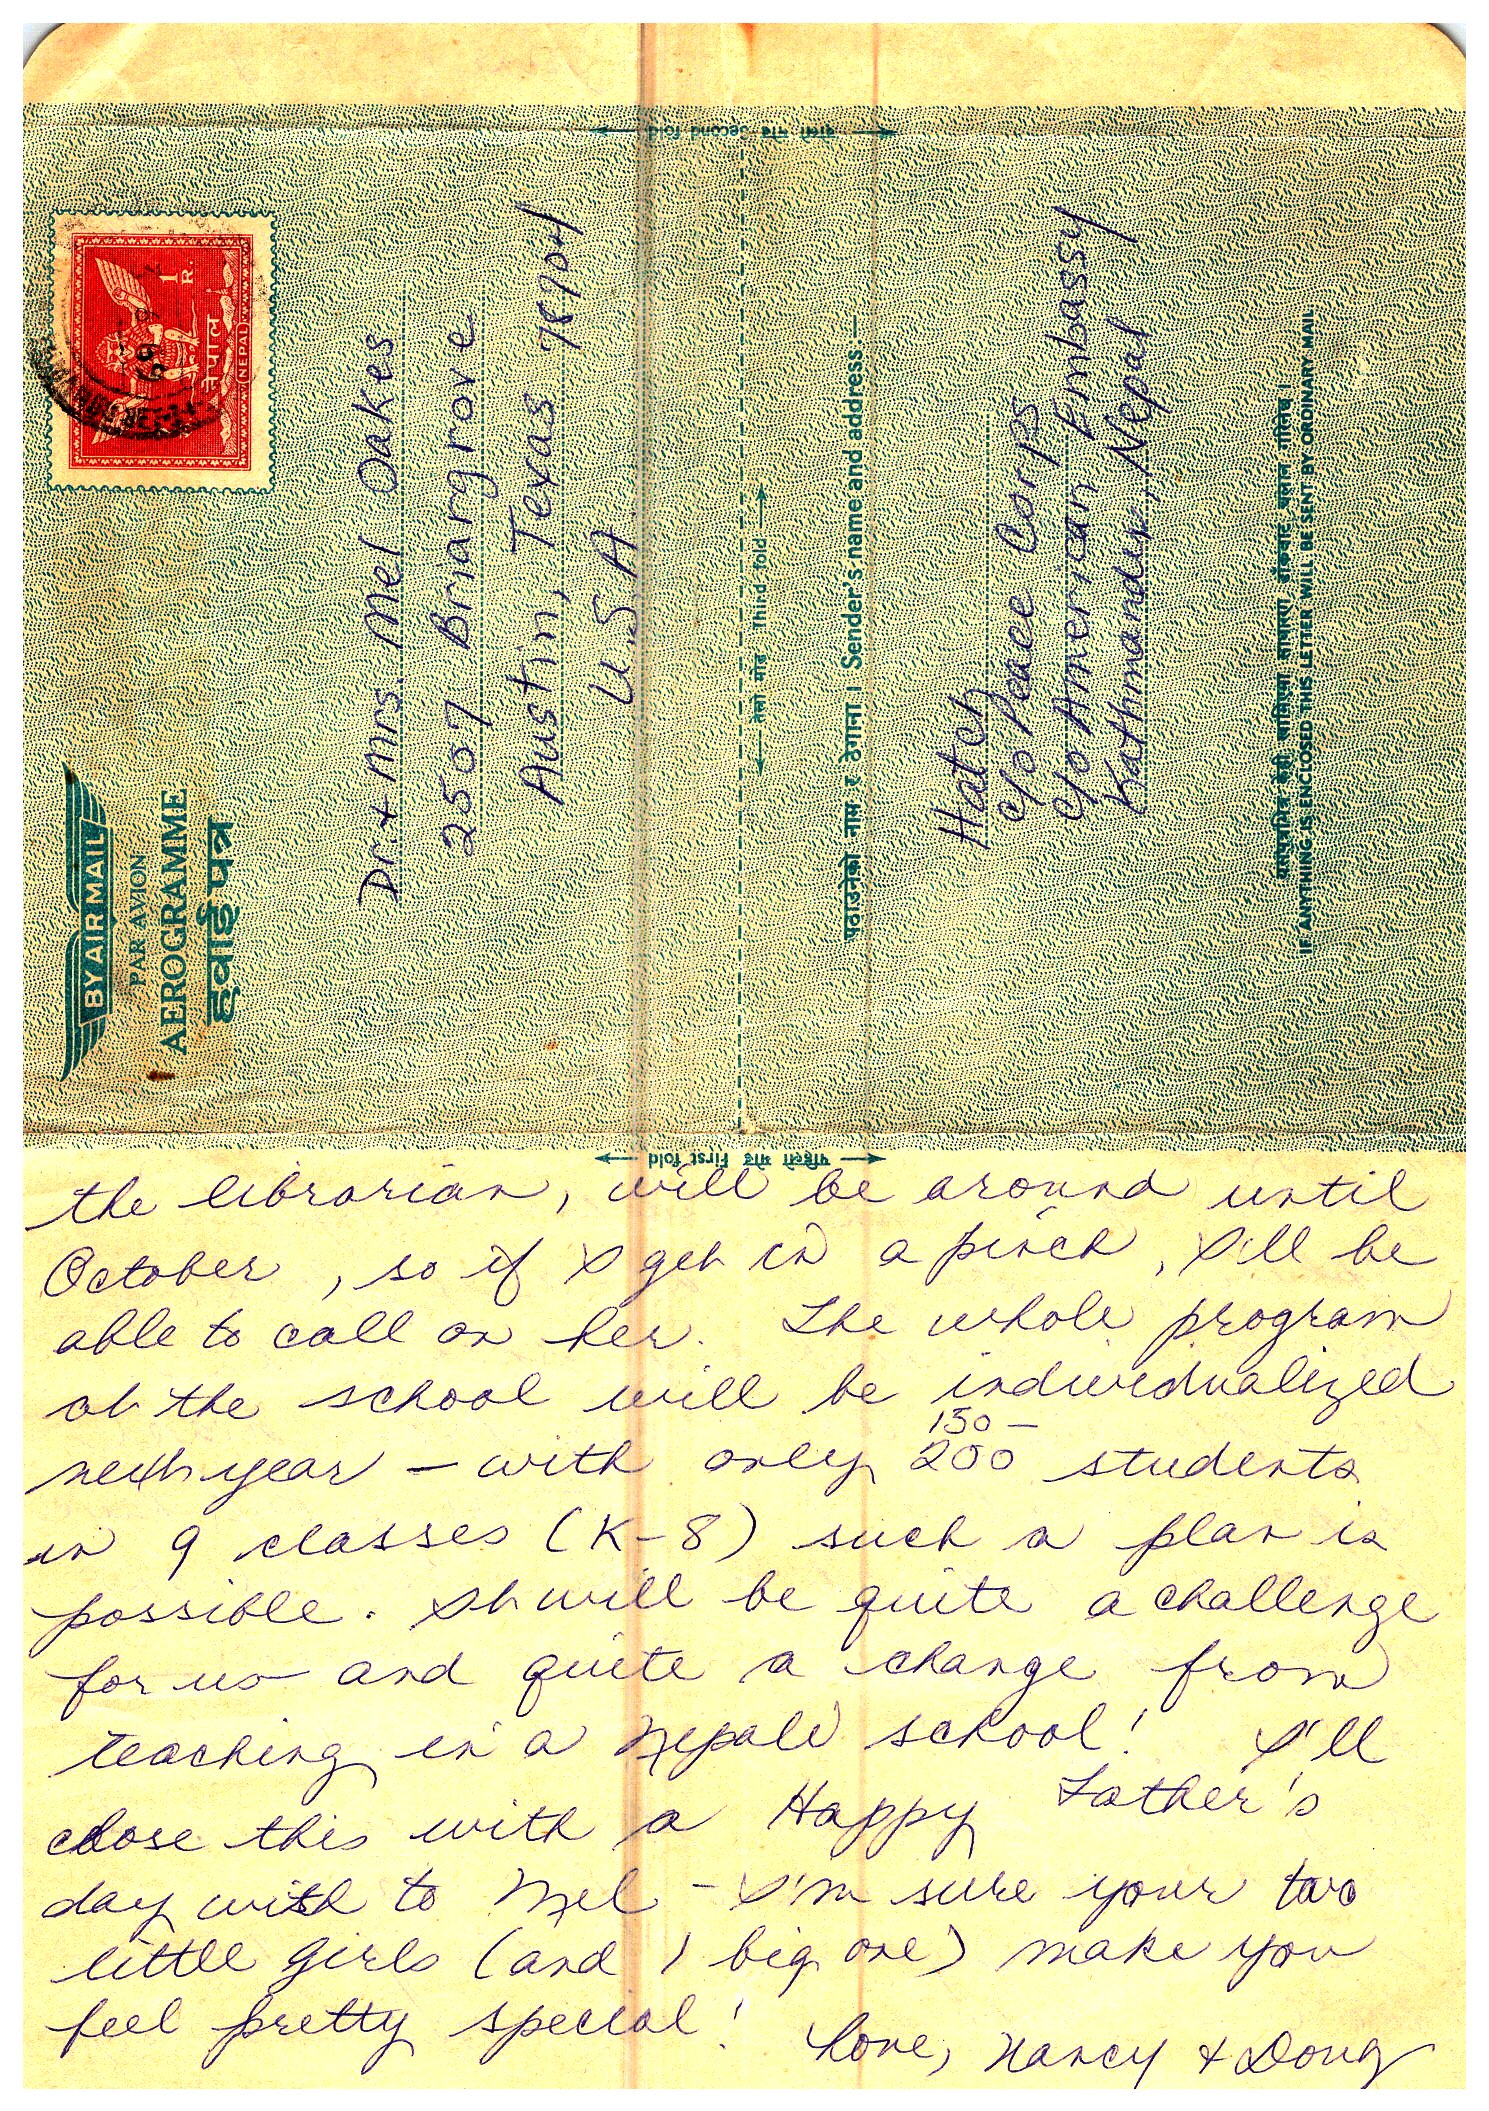 दोस्रो मोड Second fold
1
R.
नेपाल
NEPAL
69
BY AIR MAIL
PAR AVION
AEROGRAMME
हवाई पत्र
Dr. & Mrs. Mel Oakes
2507 Briargrove
Austin, Texas 78704
U.S.A.
तेस्रो मोड Third fold
पठाउनेको नाम र ठेगाना । Sender's name and address.—
Hatch
c/o Peace Corps
c/o American Embassy
Kathmandu, Nepal
IF ANYTHING IS ENCLOSED THIS LETTER WILL BE SENT BY ORDINARY MAIL
पहिलो मोड First fold
the librarian, will be around until
October, so if I get in a pinch, I'll be
able to call on her. The whole program
at the school will be individualized
150 —
next year — with only 200 students
in 9 classes (K-8) such a plan is
possible. It will be quite a challenge
for us and quite a change from
teaching in a Nepali school! I'll
close this with a Happy Father's
day wish to Mel - I'm sure your two
little girls (and 1 big one) make you
feel pretty special!
Love, Nancy & Doug